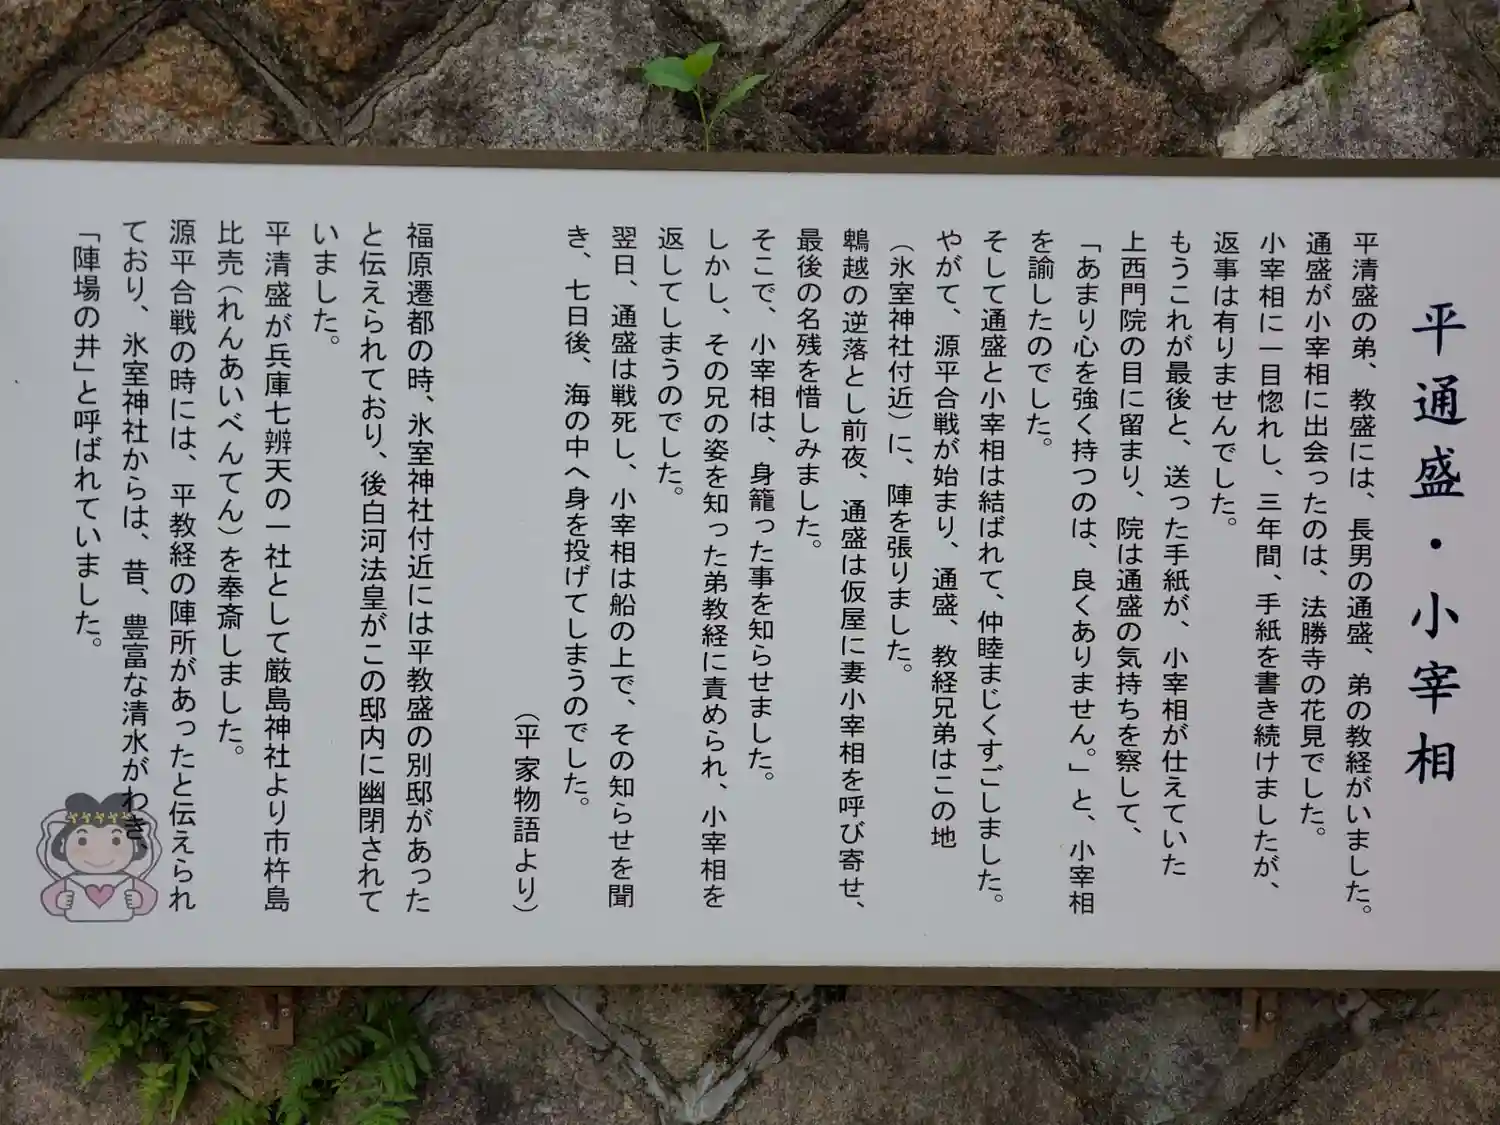 平通盛・小宰相
平清盛の弟、教盛には、長男の通盛、弟の教経がいました。
通盛が小宰相に出会ったのは、法勝寺の花見でした。
小宰相に一目惚れし、三年間、手紙を書き続けましたが、
返事は有りませんでした。
もうこれが最後と、送った手紙が、小宰相が仕えていた
上西門院の目に留まり、院は通盛の気持ちを察して、
「あまり心を強く持つのは、良くありません。」と、小宰相
を諭したのでした。
そして通盛と小宰相は結ばれて、仲睦まじくすごしました。
やがて、源平合戦が始まり、通盛、教経兄弟はこの地
(氷室神社付近)に、陣を張りました。
鵯越の逆落とし前夜、通盛は仮屋に妻小宰相を呼び寄せ、
最後の名残を惜しみました。
そこで、小宰相は、身籠った事を知らせました。
しかし、その兄の姿を知った弟教経に責められ、小宰相を
返してしまうのでした。
翌日、通盛は戦死し、小宰相は船の上で、その知らせを聞
き、七日後、海の中へ身を投げてしまうのでした。
(平家物語より)
福原遷都の時、氷室神社付近には平教盛の別邸があった
と伝えられており、後白河法皇がこの邸内に幽閉されて
いました。
平清盛が兵庫七辨天の一社として厳島神社より市杵島
比売(れんあいべんてん)を奉斎しました。
源平合戦の時には、平教経の陣所があったと伝えられ
ており、氷室神社からは、昔、豊富な清水がわき、
「陣場の井」と呼ばれていました。